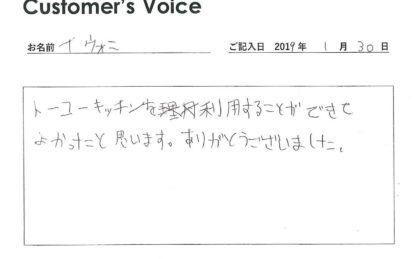 Customer's Voice
お名前 イヴォニ ご記入日 2019年 1月 30日
トーコーキッチンを利用することができて
よかったと思います。ありがとうございました。